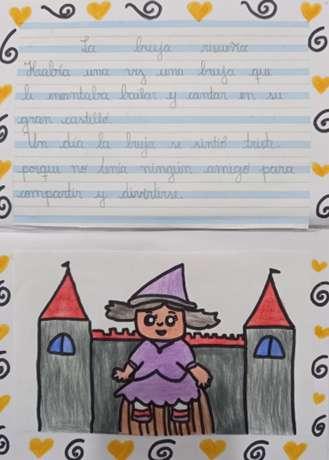 La bruja
Había una vez una bruja que
le encantaba bailar y cantar en su
gran castillo.
Un día la bruja se sintió triste
porque no tenía ningún amigo para
compartir y divertirse.